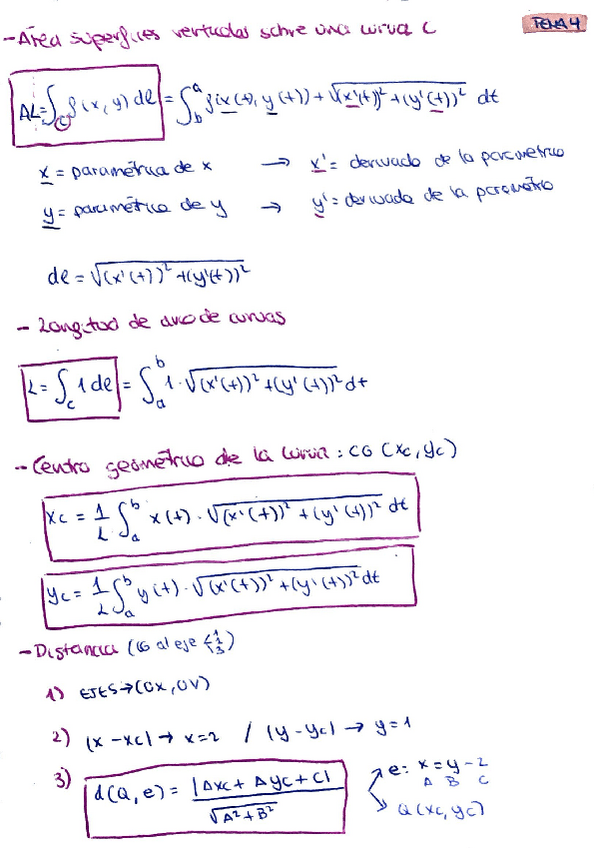 TEMA 4
- Area superficies verticales sobre una curva C
AL = ∫_C f(x,y) dl = ∫_b^a f(x(t), y(t)) + √((x'(t))² + (y'(t))²) dt
x = paramétrica de x → x' = derivada de la parametrica
y = parametrica de y → y' = derivada de la parametric
dl = √((x'(t))² + (y'(t))²)
- Longitud de arco de curvas
L = ∫_C 1 dl = ∫_a^b 1 · √((x'(t))² + (y'(t))²) dt
- Centro geométrico de la curva : CG (xc, yc)
xc = 1/L ∫_a^b x(t) · √((x'(t))² + (y'(t))²) dt
yc = 1/L ∫_a^b y(t) · √((x'(t))² + (y'(t))²) dt
- Distancia (CG al eje { 1 2 3 )
1) EJES → (OX, OY)
2) |x - xc| → x = 2 / |y - yc| → y = 1
3) d(Q, e) = |Axc + Ayc + C| / √(A² + B²)
e: x = y - 2
A B C
Q (xc, yc)